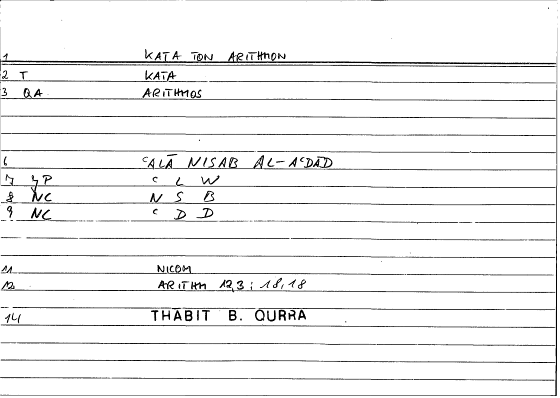 1 KATA TON ARITHMON
2 T KATA
3 QA ARITHMOS
6 ʿALĀ NISAB AL-AʿDĀD
7 YP ʿ L W
8 NC N S B
9 NC ʿ D D
11 NICOM
12 ARITHM 12,3; 18,18
14 THABIT B. QURRA